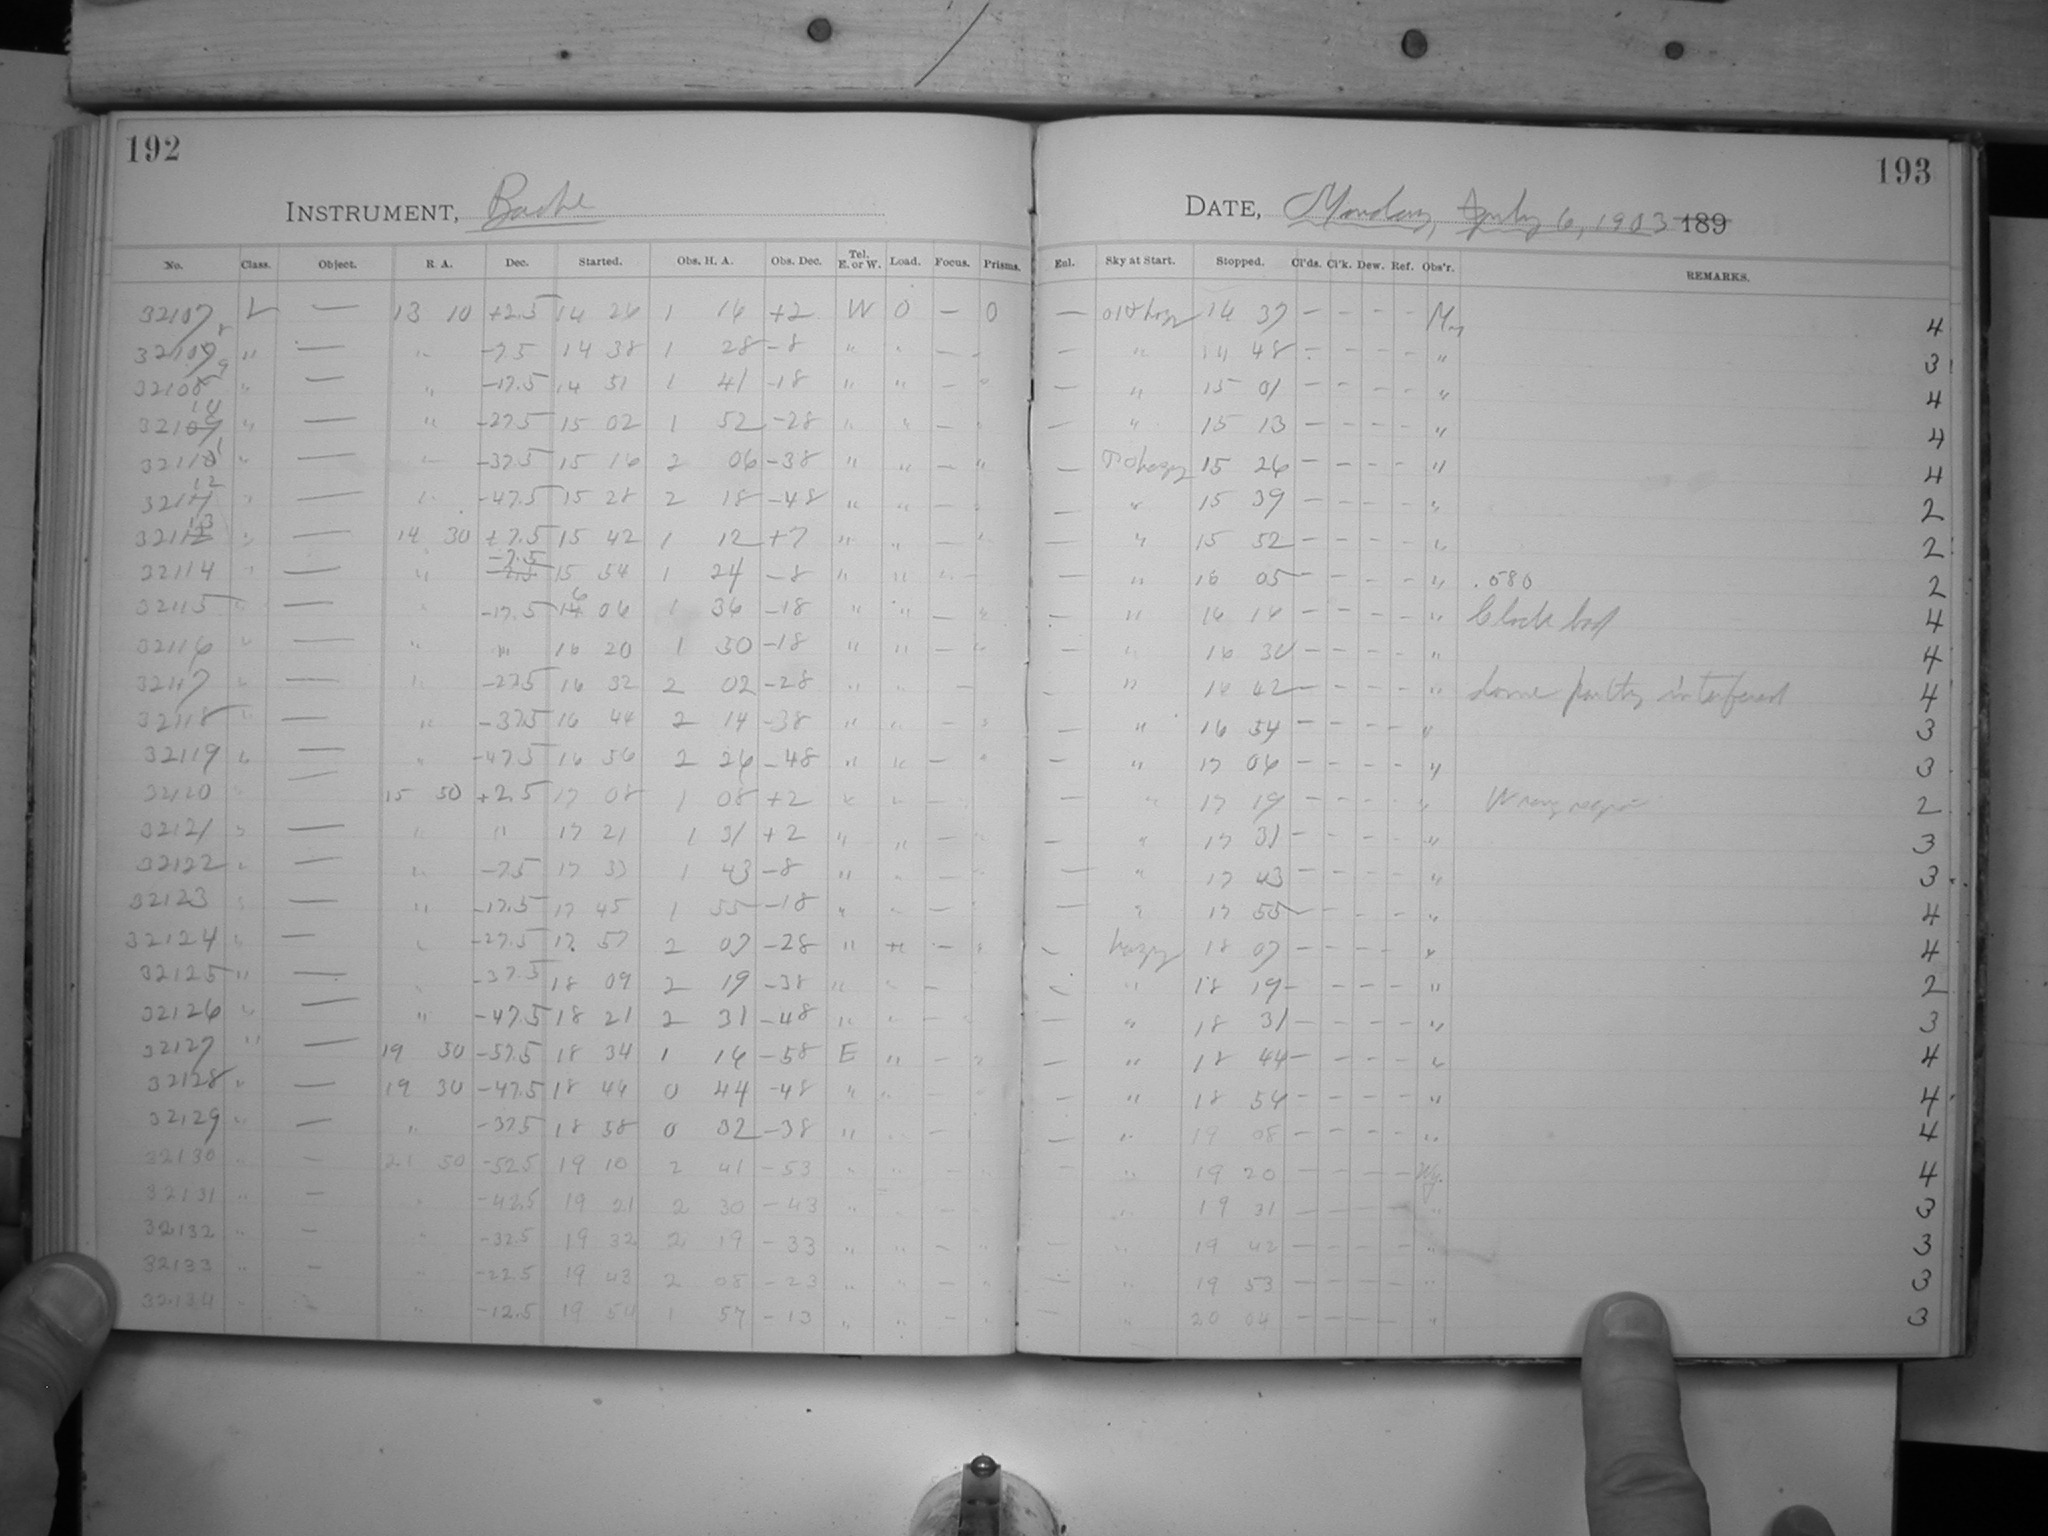 192
193
INSTRUMENT, Bache
DATE, Monday, April 6, 1903 189
No. Class. Object. R. A. Dec. Started. Obs. H. A. Obs. Dec. Tel. E. or W. Load. Focus. Prisms. Enl. Sky at Start. Stopped. Cl'ds. Cl'k. Dew. Ref. Obs'r. REMARKS.
32107 L — 13 10 +2.5 14 26 1 16 +2 W 0 — 0 — 14 37 — — — — 4
32108 " — " -7.5 14 38 1 28 -8 " " — — " 14 48 — — — " 3
32109 " — " -17.5 14 51 1 41 -18 " " — " — " 15 01 — — — — " 4
32110 " — " -27.5 15 02 1 52 -28 " " — " — " 15 13 — — — — " 4
32111 " — " -37.5 15 16 2 06 -38 " " — " — 15 26 — — — — " 4
32112 " — " -47.5 15 28 2 18 -48 " " — " — " 15 39 — — — — " 2
32113 " — 14 30 +7.5 15 42 1 12 +7 " " — " — " 15 52 — — — — " 2
32114 " — " -7.5 15 54 1 24 -8 " " — — " 16 05 — — — — " .080 2
32115 " — " -17.5 16 06 1 36 -18 " " — " — " 16 16 — — — — " Clock bad 4
32116 " — " " 16 20 1 30 -18 " " — " — " 16 30 — — — — " 4
32117 " — " -27.5 16 32 2 02 -28 " " — — " 16 42 — — — — " dome partly interfered 4
32118 " — " -37.5 16 44 2 14 -38 " " — " — " 16 54 — — — — " 3
32119 " — " -47.5 16 56 2 26 -48 " " — " — " 17 06 — — — — " 3
32120 " — 15 50 +2.5 17 08 1 08 +2 " " — " — " 17 19 — — — — " Wrong region 2
32121 " — " " 17 21 1 31 +2 " " — " — " 17 31 — — — — " 3
32122 " — " -7.5 17 33 1 43 -8 " " — " — " 17 43 — — — — " 3
32123 " — " -17.5 17 45 1 55 -18 " " — " — " 17 55 — — — — " 4
32124 " — " -27.5 17 57 2 07 -28 " " — " — hazy 18 07 — — — — " 4
32125 " — " -37.5 18 09 2 19 -38 " " — — " 18 19 — — — — " 2
32126 " — " -47.5 18 21 2 31 -48 " " — " — " 18 31 — — — — " 3
32127 " — 19 50 -57.5 18 34 1 16 -58 E " — " — " 18 44 — — — — " 4
32128 " — 19 30 -47.5 18 46 0 44 -48 " " — " — " 18 56 — — — — " 4
32129 " — " -37.5 18 58 0 32 -38 " " — — " 19 08 — — — — " 4
32130 " — 21 50 -52.5 19 10 2 41 -53 " " — " — " 19 20 — — — — 4
32131 " — " -42.5 19 21 2 30 -43 " " — " " 19 31 — — — — " 3
32132 " — " -32.5 19 32 2 19 -33 " " — " — " 19 42 — — — — " 3
32133 " — " -22.5 19 43 2 08 -23 " " — " — " 19 53 — — — — " 3
32134 " — " -12.5 19 54 1 57 -13 " " — " — " 20 04 — — — — " 3